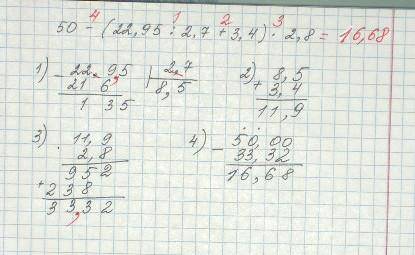 4 1 2 3
50 - (22,95 : 2,7 + 3,4) · 2,8 = 16,68
1) - 22,95 | 2,7
21 6 8,5
1 35
2) + 8,5
3,4
11,9
3) · 11,9
2,8
952
+ 238
33,32
4) - 50,00
33,32
16,68